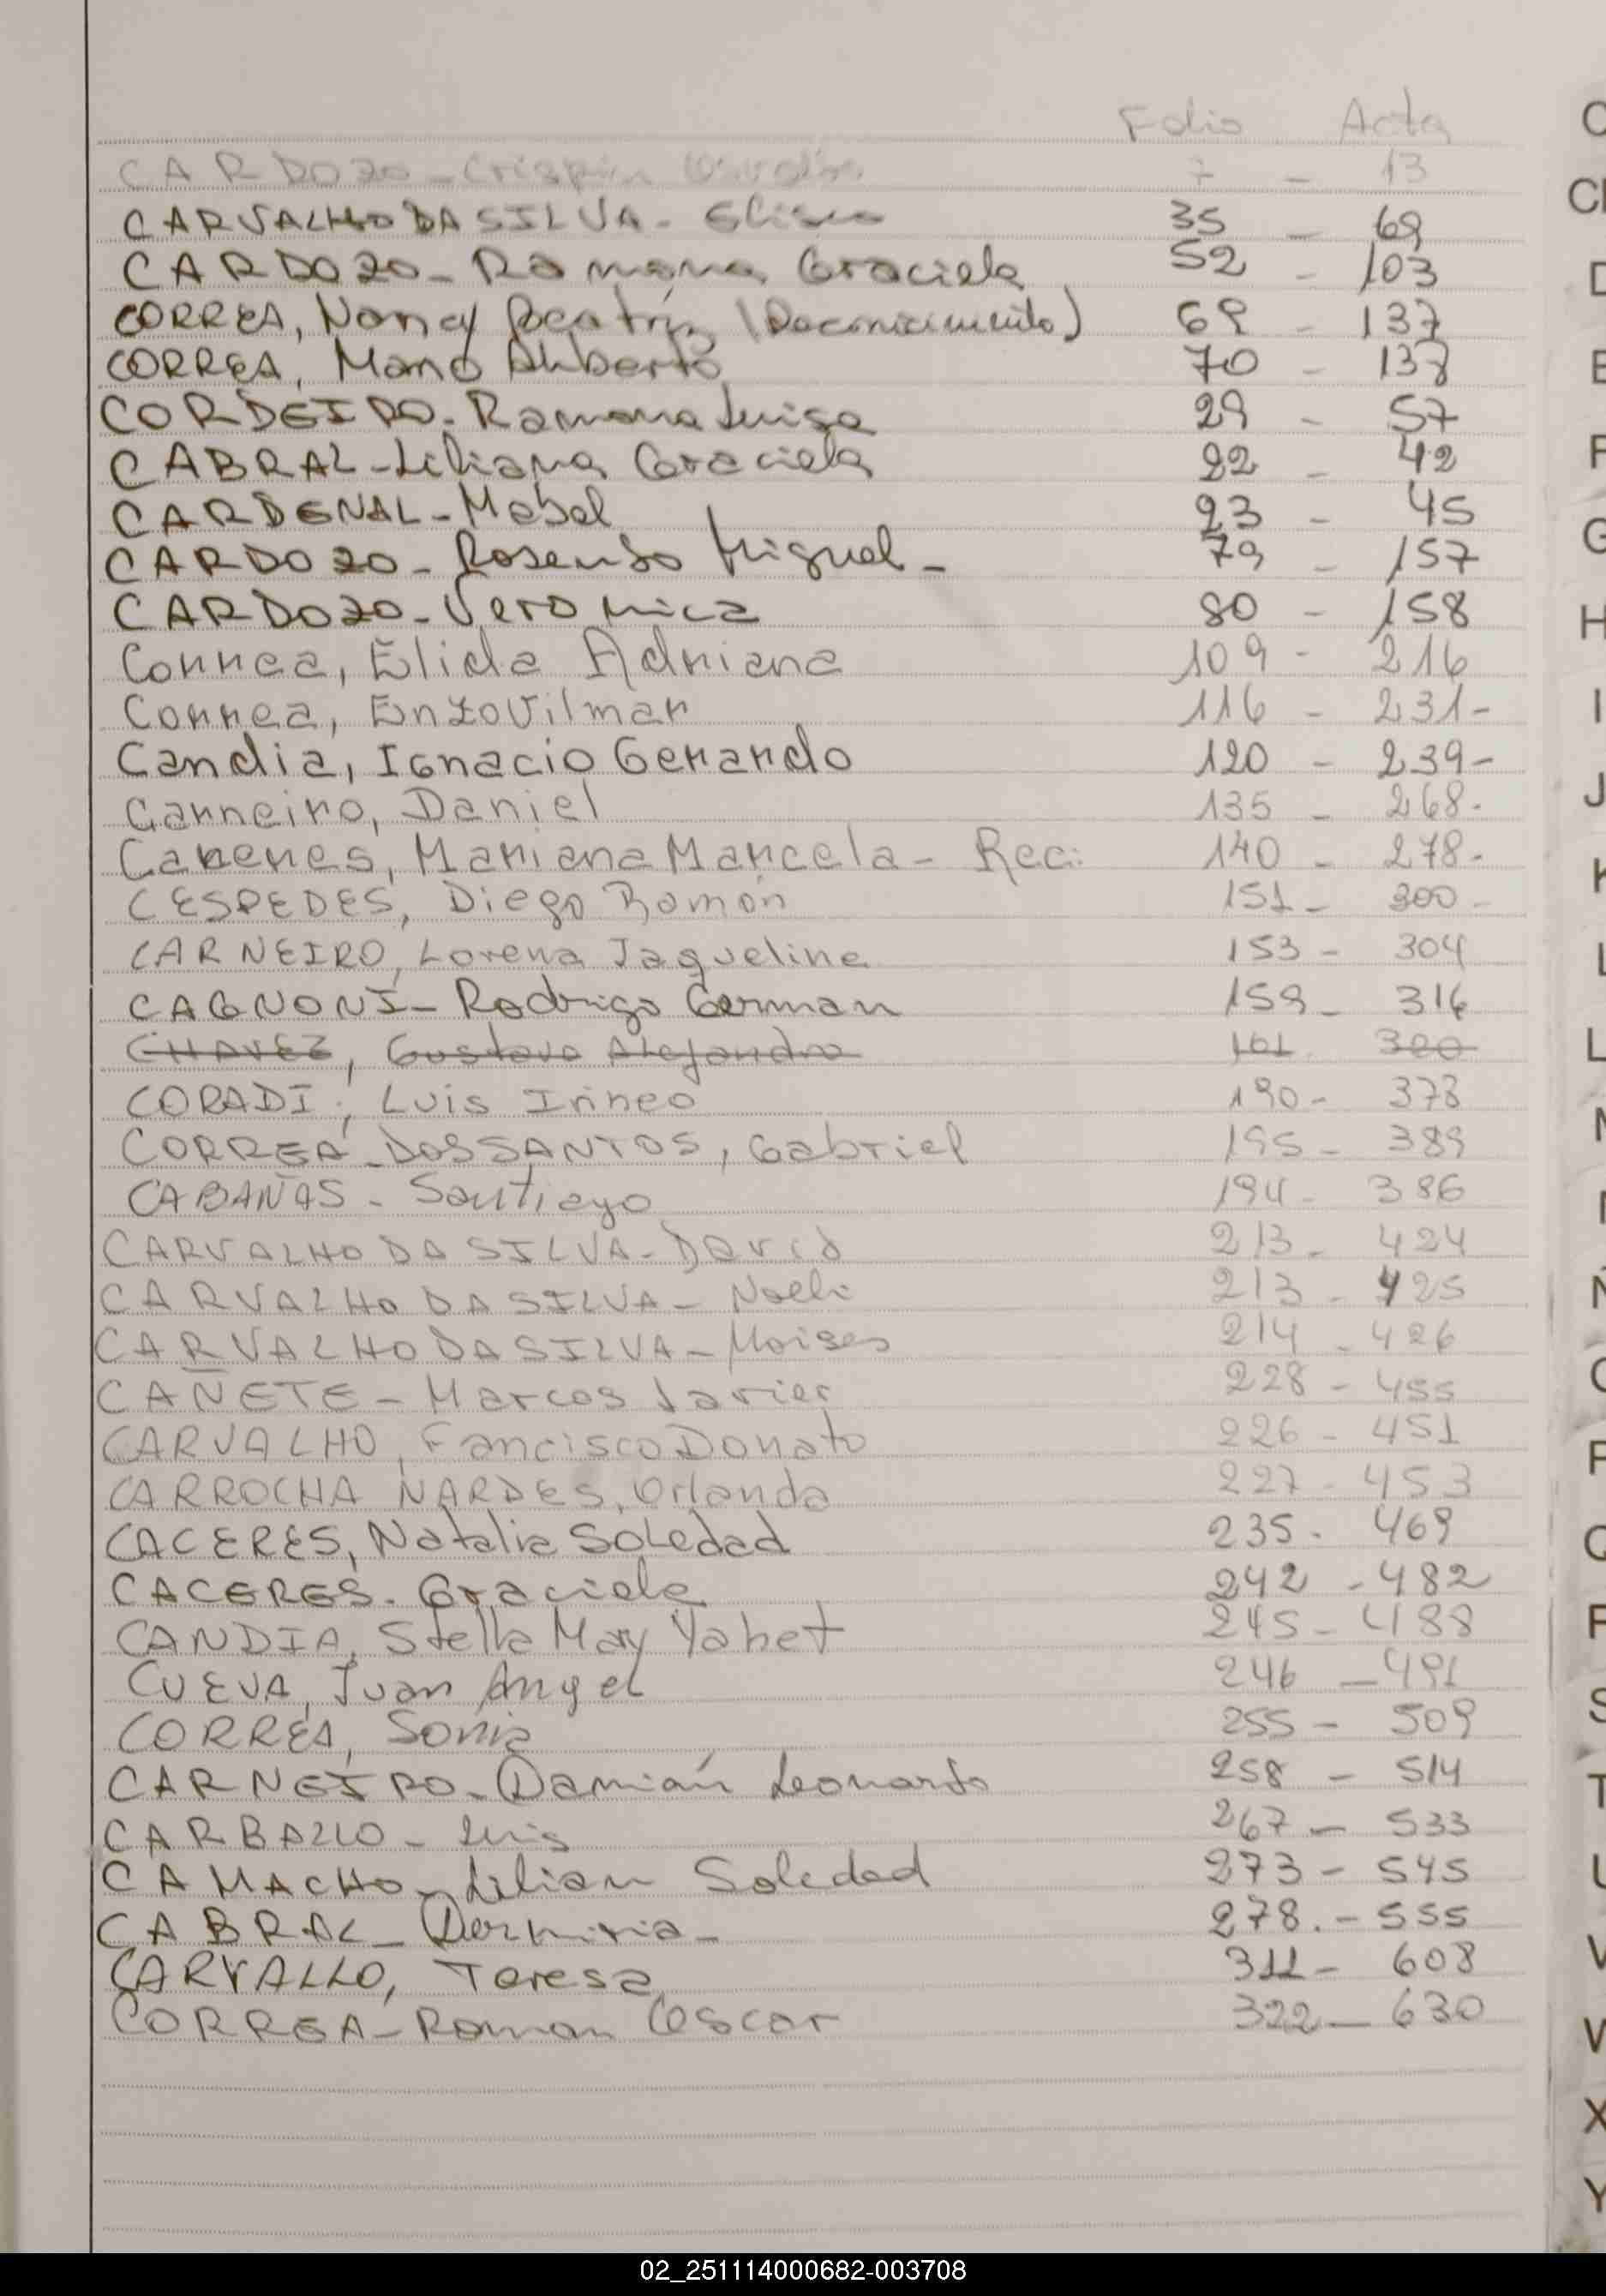 Folio Acta
CARDOZO - Crispin Osvaldo 7 - 13
CARVALHO DA SILVA - Eliseo 35 - 69
CARDOZO - Ramona Graciela 52 - 103
CORREA, Nancy Beatriz (Reconicimiento) 69 - 137
CORREA, Mario Aliberto 70 - 138
CORDEIRO - Ramona Luisa 29 - 57
CABRAL - Liliana Graciela 22 - 42
CARDENAL - Mabel 23 - 45
CARDOZO - Rosendo Miguel - 79 - 157
CARDOZO - Veronica 80 - 158
Correa, Elida Adriana 109 - 216
Correa, Enzo Vilmar 116 - 231 -
Candia, Ignacio Gerardo 120 - 239 -
Carneiro, Daniel 135 - 268 -
Mariana Marcela - Rec: 140 - 278 -
CESPEDES, Diego Ramón 151 - 300 -
CARNEIRO, Lorena Jaqueline 153 - 304
CAGNONI - Rodrigo German 159 - 316
CHAVEZ, Gustavo Alejandro 161 320
CORADI, Luis Irineo 190 - 378
CORREA - DOSSANTOS, Gabriel 195 - 389
CABAÑAS - Santiago 194 - 386
CARVALHO DA SILVA - David 213 - 424
CARVALHO DA SILVA - Noeli 213 - 425
CARVALHO DA SILVA - Moises 214 - 426
CAÑETE - Marcos Javier 228 - 455
CARVALHO, Fancisco Donato 226 - 451
CARROCHA NARDES, Orlando 227 - 453
CACERES, Natalia Soledad 235 - 469
CACERES - Graciela 242 - 482
CANDIA, Stella Mary Yabet 245 - 488
CUEVA, Juan Angel 246 - 491
CORREA, Sonia 255 - 509
CARNEIRO - Damián Leonardo 258 - 514
CARBALLO - Luis 267 - 533
CAMACHO - Lilian Soledad 273 - 545
CABRAL - 278. - 555
CARVALLO, Teresa 311 - 608
CORREA - Roman Oscar 322 - 630
C
CH
D
E
F
G
H
I
J
K
L
LL
M
N
Ñ
O
P
Q
R
S
T
U
V
W
X
Y
02_251114000682-003708